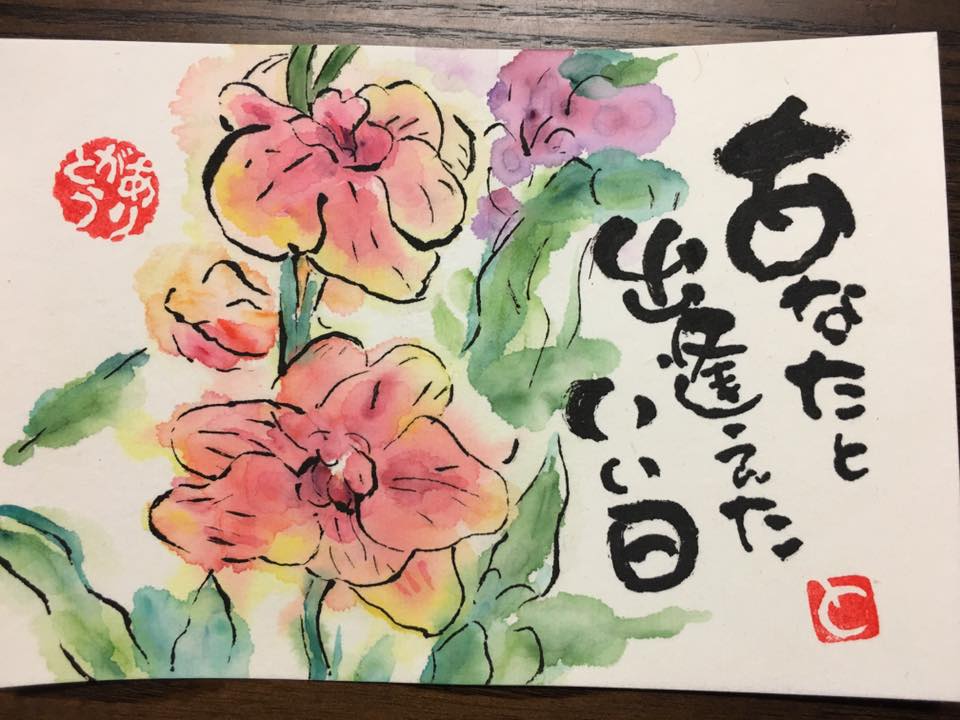 あなたと
出逢えた
いい日
と
ありがとう